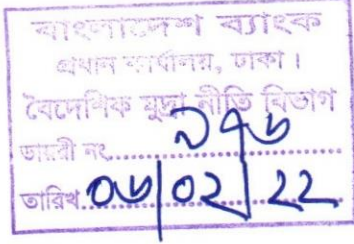 বাংলাদেশ ব্যাংক
প্রধান কার্যালয়, ঢাকা।
বৈদেশিক মুদ্রা নীতি বিভাগ
ডায়রী নং..... ১৭৬
তারিখ..... ০৬/০২/২২